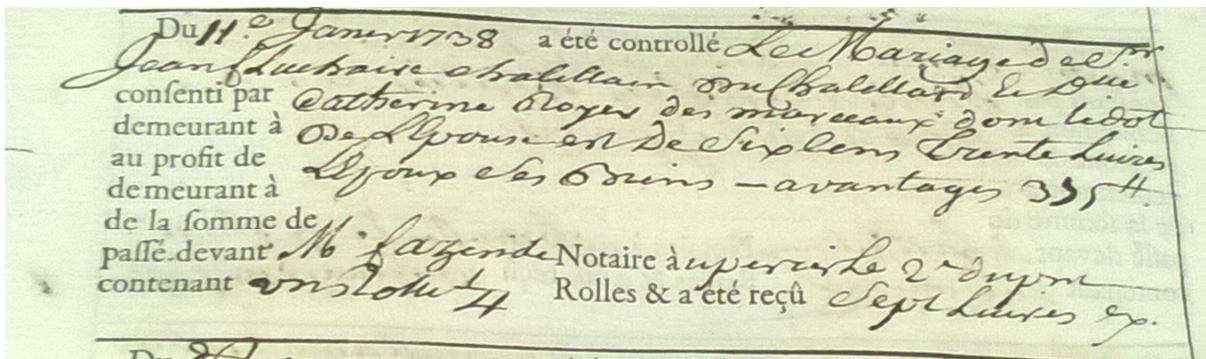 Du 11.e Janvr 1738 a été controllé Le Mariage de Sr
Jean fluchaire chatellain du Chatellard & Dlle
consenti par Catherine Royer des marceaux dont la dot
demeurant à De L'Epouse est De Six Cens Trente Livres
au profit de L'Epoux Ses Biens – avantages 315 ₶.
demeurant à
de la somme de
passé devant Me fazende Notaire à le 2e du pnt
contenant un rolle 1/4 Rolles & a été reçû Sept Livres
Du